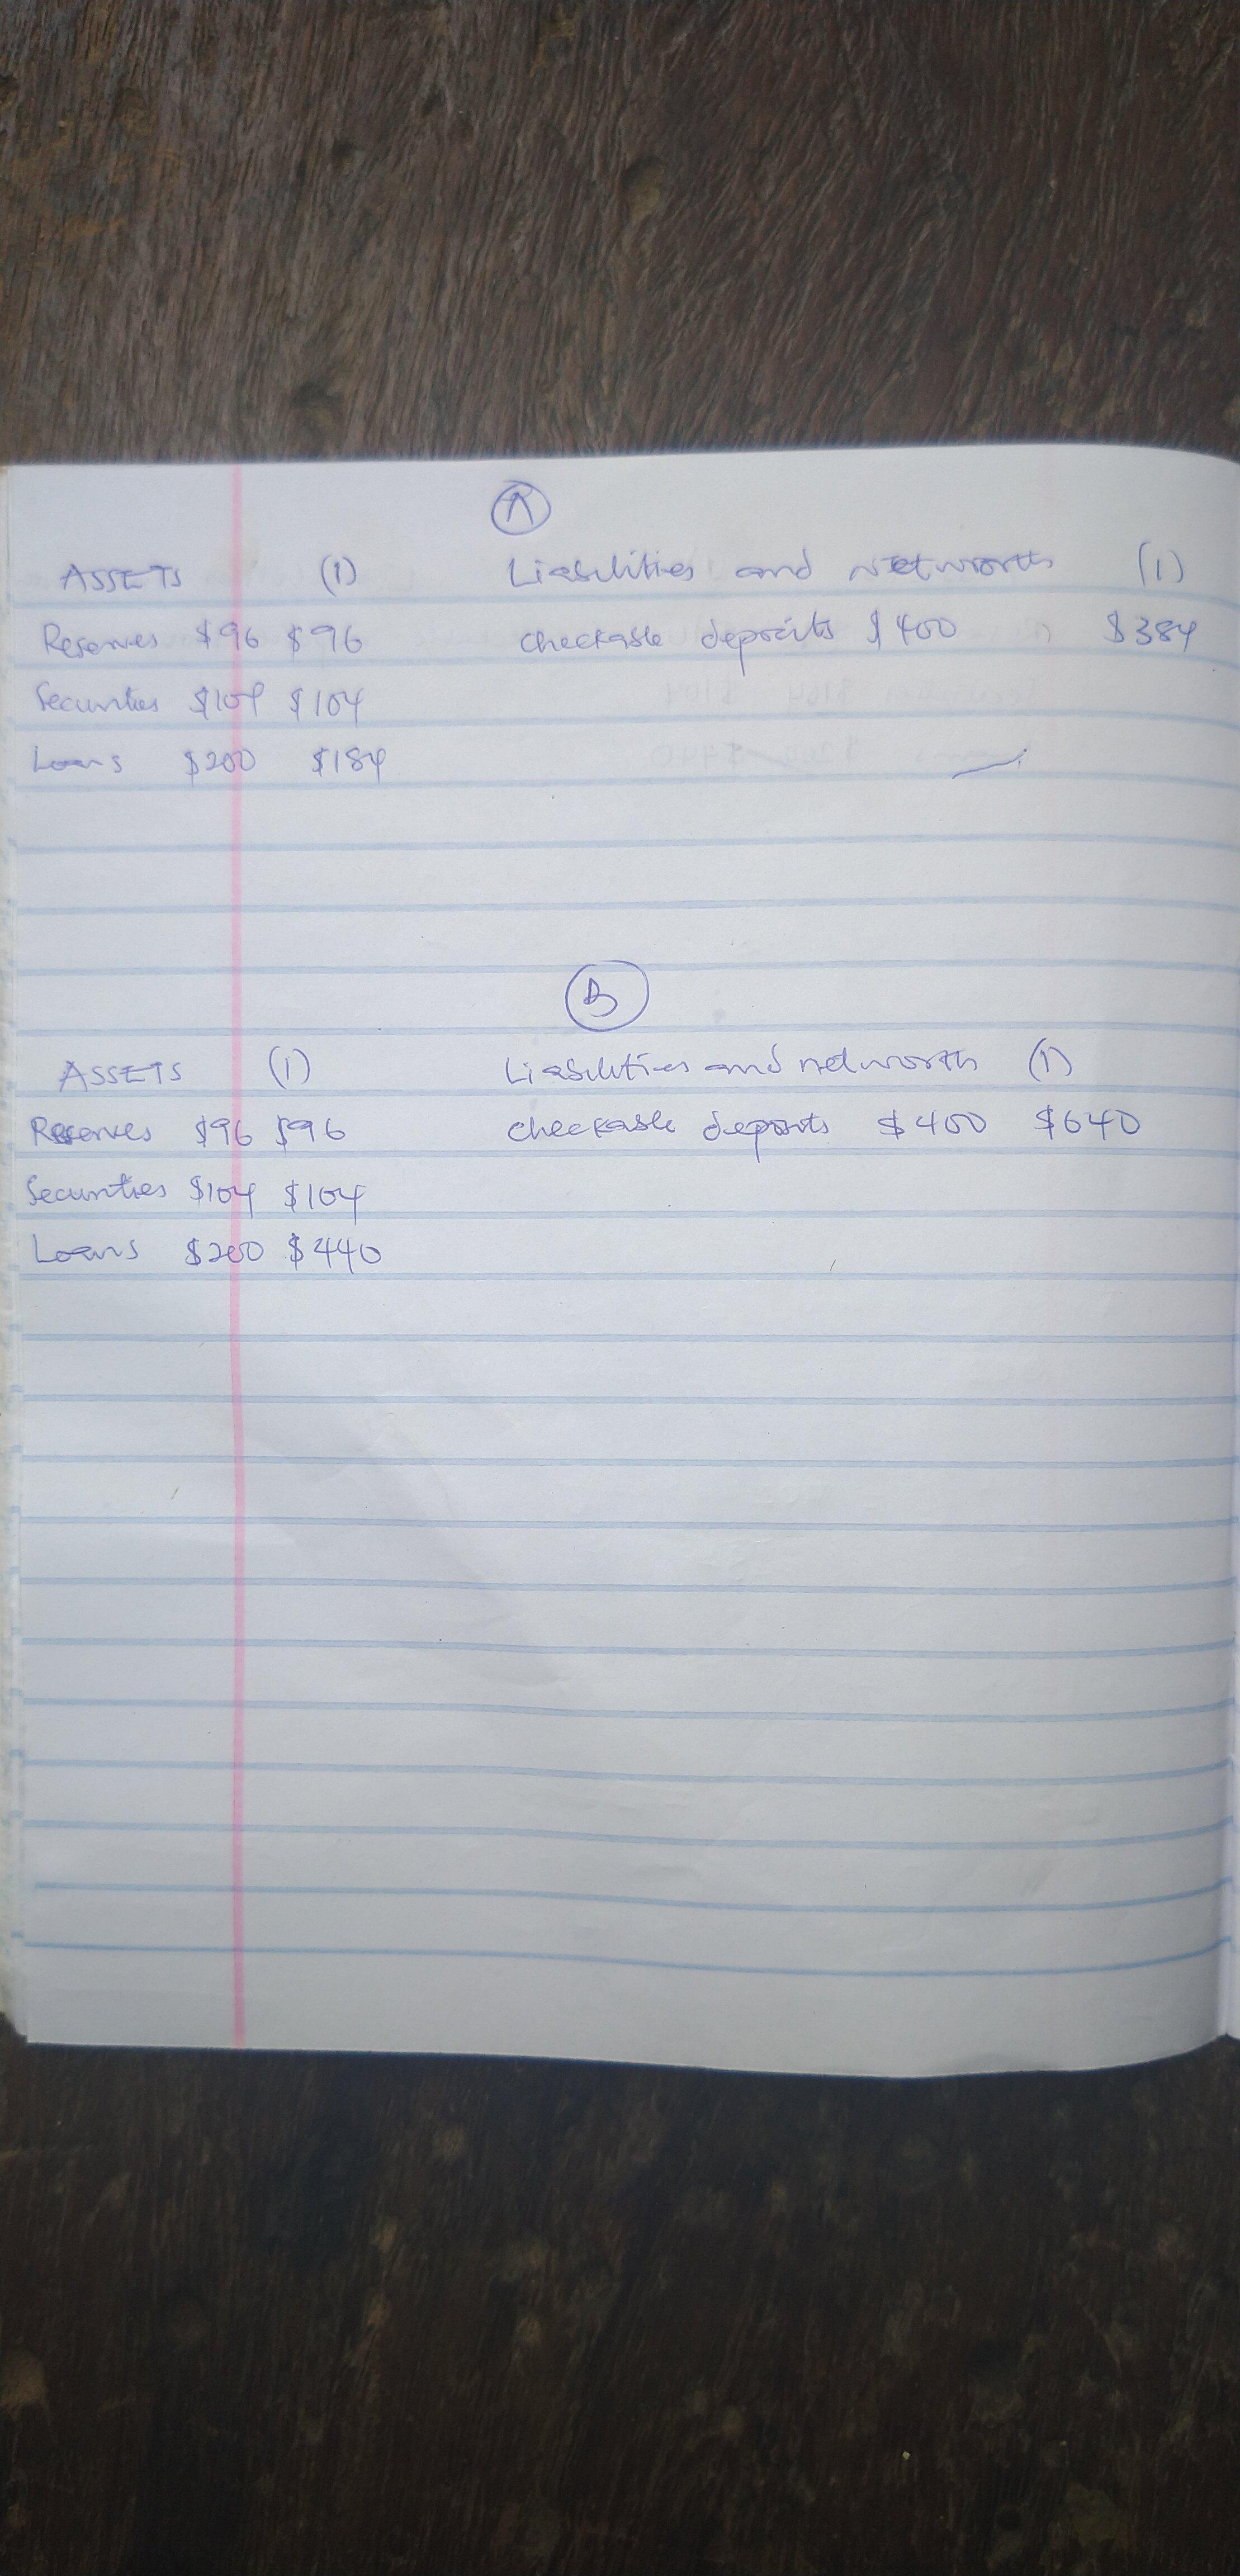 A
ASSETS (1) Liabilities and networth (1)
Reserves $96 $96 checkable deposits $400 $384
Securities $104 $104
Loans $200 $184
B
ASSETS (1) Liabilities and networth (1)
Reserves $96 $96 checkable deposits $400 $640
Securities $104 $104
Loans $200 $440